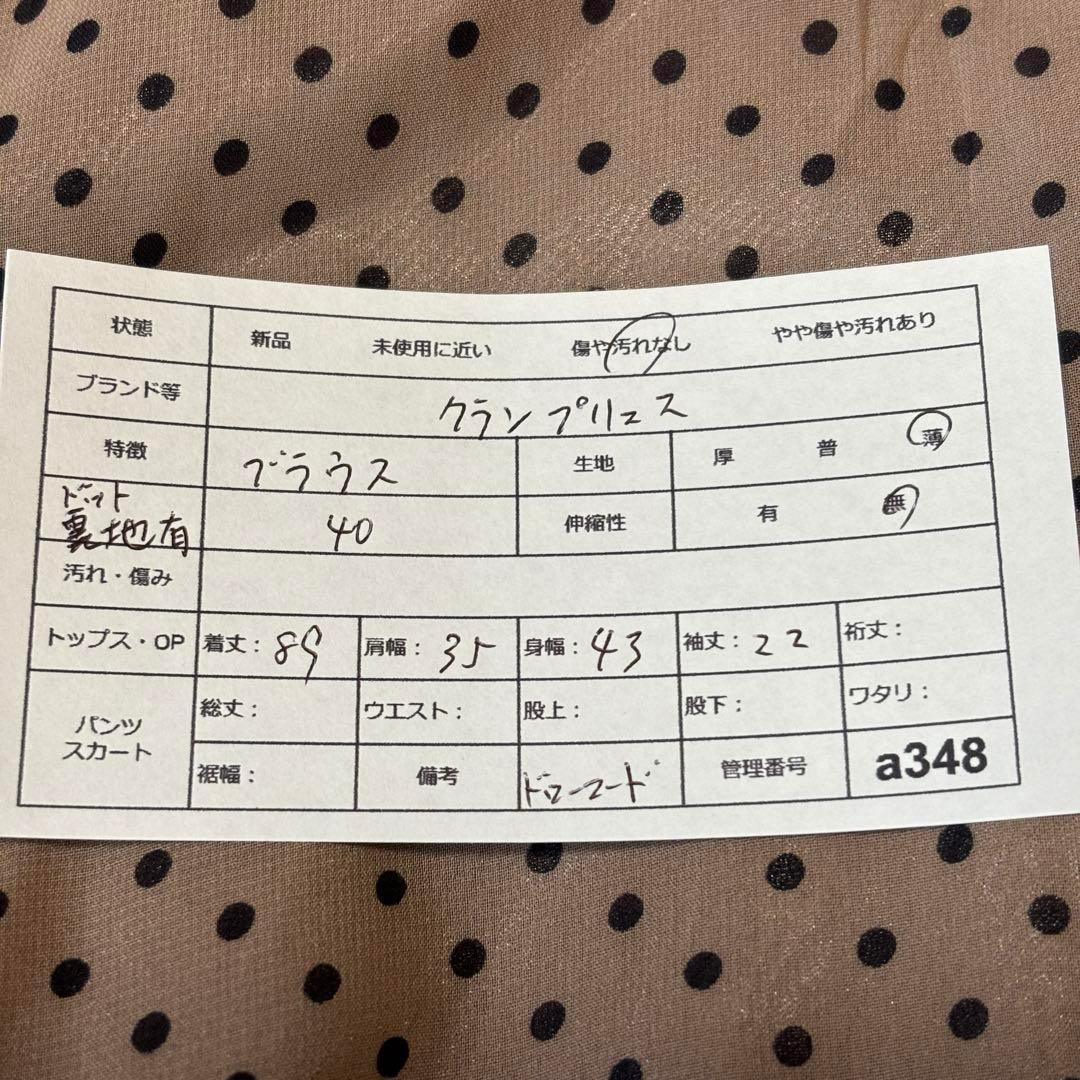 状態 新品 未使用に近い 傷や汚れなし やや傷や汚れあり
ブランド等 クランプリュス
特徴 ブラウス 生地 厚 普 薄
ドット
裏地有 40 伸縮性 有 無
汚れ・傷み
トップス・OP 着丈：89 肩幅：35 身幅：43 袖丈：22 裄丈：
パンツ
スカート
総丈： ウエスト： 股上： 股下： ワタリ：
裾幅： 備考 ドローコード 管理番号 a348